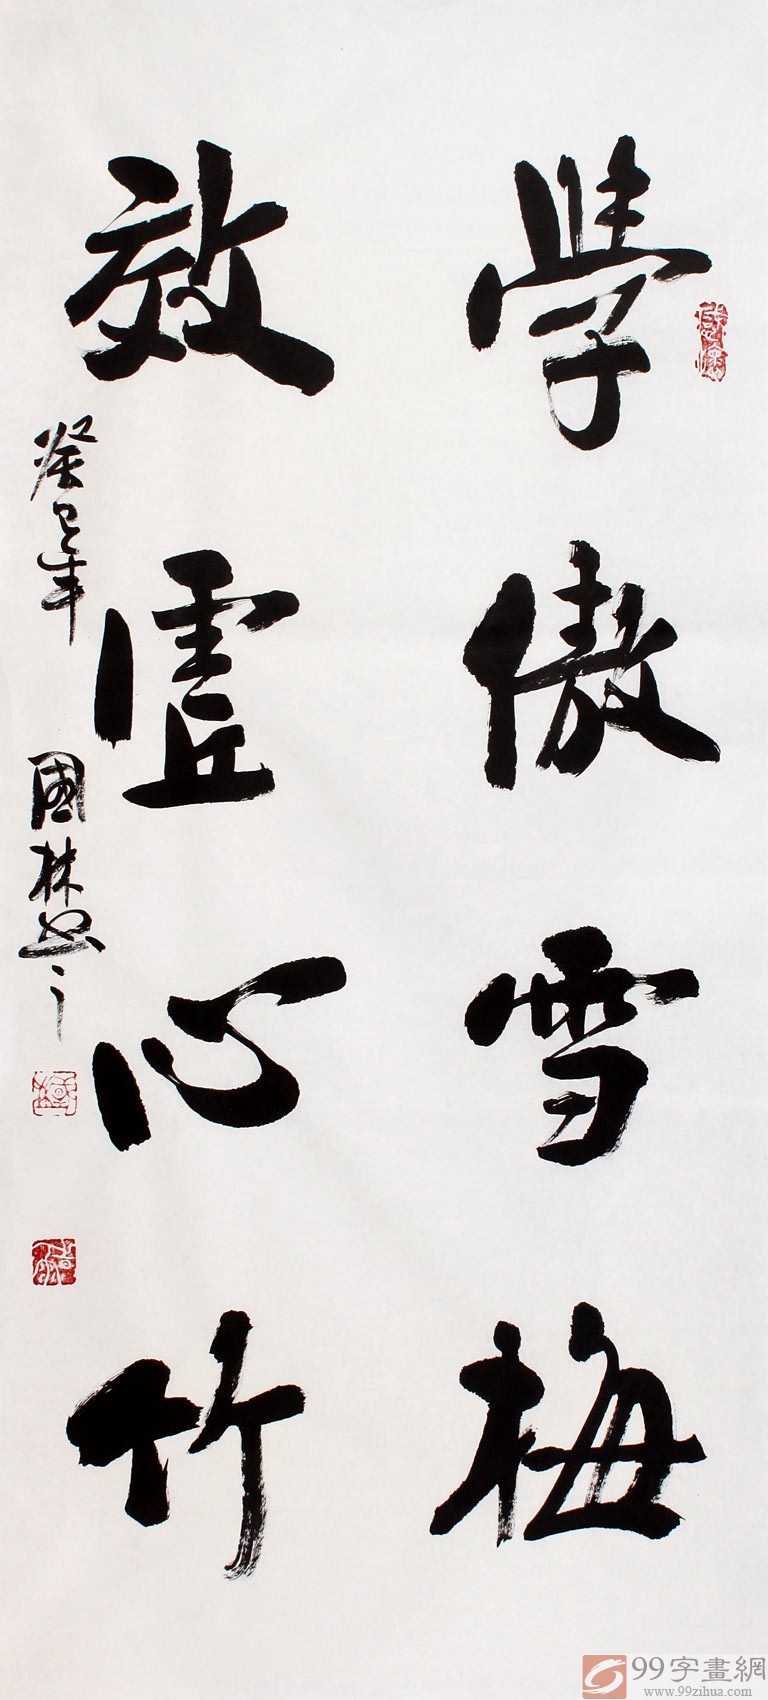 學傲雪梅
效虛心竹
癸巳年 國林書
99字畫網
www.99zihua.com